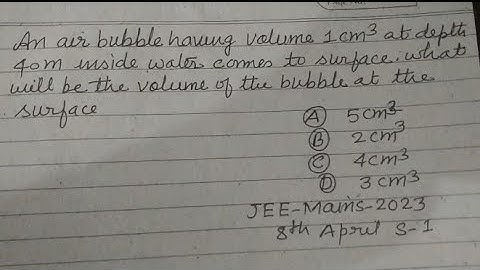 An air bubble having volume 1cm³ at depth
40m inside water comes to surface. what
will be the volume of the bubble at the
surface
Ⓐ 5cm³
Ⓑ 2cm³
Ⓒ 4cm³
Ⓓ 3cm³
JEE-Mains-2023
8th April S-1